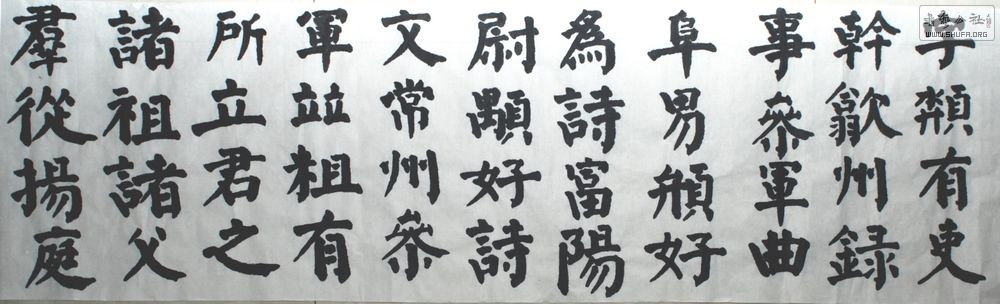 子有吏
幹歙州録
事叅軍曲
阜男好
爲詩富陽
尉顒好詩
文常州叅
軍竝粗有
所立君之
諸祖諸父
羣從揚庭
WWW.SHUFA.ORG